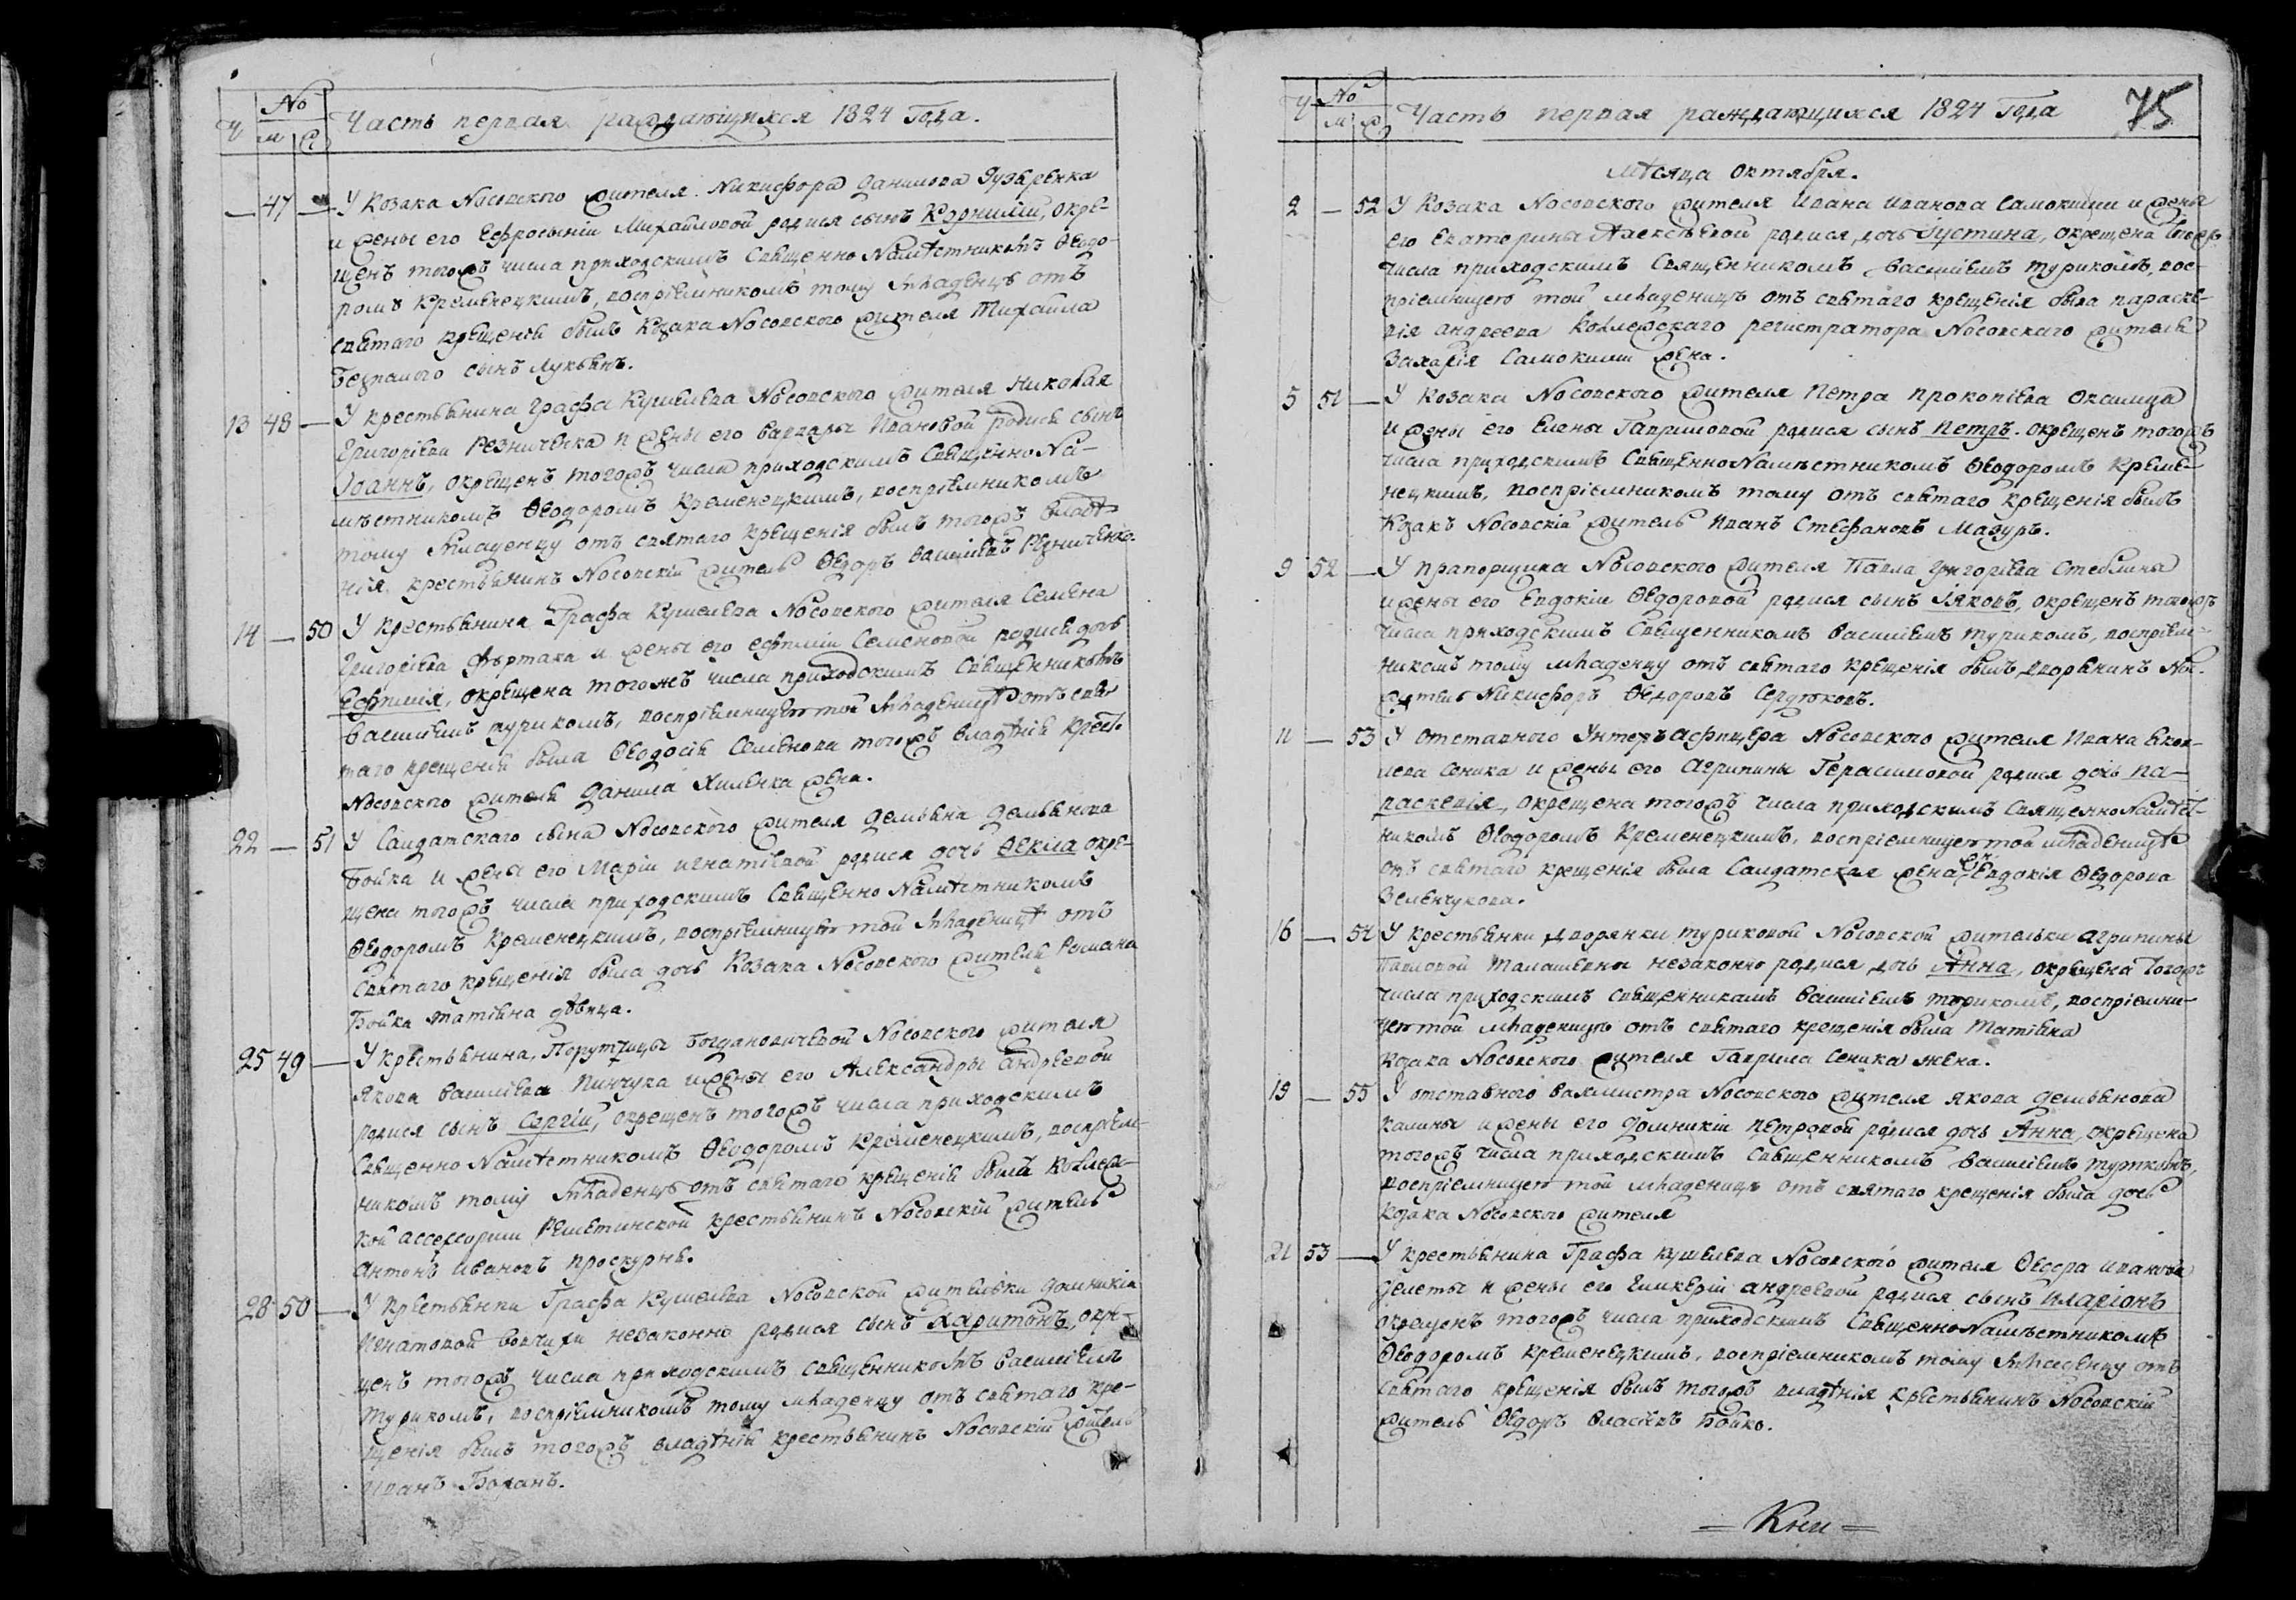 Ч № м ж Часть первая раждающихся 1824 Года.
— 47 — У Козака Носовского жителя Никифора Данилова
и жены его Ефросыніи Михайловой родися сынъ Корнилій, окре-
щенъ тогожъ числа приходскимъ Священно Намѣстникомъ Ѳеодо-
ромъ Кременецкимъ, воспріемникомъ тому Младенцу отъ
святаго крещенія былъ Козака Носовского жителя Михайла
сынъ Лукьянъ.
13 48 — У крестьянина Графа Кушелева Носовского жителя Николая
Григоріева Резниченка и жены его Варвары Ивановой родися сынъ
Іоаннъ, окрещенъ тогожъ числа приходскимъ Священно На-
мѣстникомъ Ѳеодоромъ Кременецкимъ, воспріемникомъ
тому Младенцу отъ святаго крещенія былъ тогожъ владѣ-
нія крестьянинъ Носовскій житель Ѳедоръ Василіевъ Резниченко.
14 — 50 У крестьянина Графа Кушелева Носовского жителя Семена
Григоріева Фертака и жены его Ефиміи Семеновой родися дочь
Ефимія, окрещена тогожъ числа приходскимъ Священникомъ
Василіемъ Туриkомъ, воспріемницею той Младеницѣ отъ свя-
таго крещенія была Ѳеодосія Семенова тогожъ владѣнія крест.
Носовского жителя Данила Хиленка жена.
22 — 51 У Салдатского сына Носовского жителя Демьяна Демьянова
Бойка и жены его Маріи Игнатіевой родися дочь Ѳекла окре-
щена тогожъ числа приходскимъ Священно Намѣстникомъ
Ѳеодоромъ Кременецкимъ, воспріемницею той Младеницѣ отъ
святаго крещенія была дочь Козака Носовского жителя Романа
Бойка Татіана дѣвица.
25 49 — У крестьянина, Порутчицы Богдановичевой Носовского жителя
Якова Василіева Пинчука и жены его Александры Андреевой
родися сынъ Сергій, окрещенъ тогожъ числа приходскимъ
Священно Намѣстникомъ Ѳеодоромъ Кременецкимъ, воспріем-
никомъ тому Младенцу отъ святаго крещенія былъ Коллеж-
кой ассесорши Решетинской крестьянинъ Носовскій житель
Антонъ Ивановъ Проскурня.
28 50 — У крестьянки Графа Кушелева Носовской жительки Домникіи
Игнатовой незаконно родися сынъ Харитонъ, окре-
щенъ тогожъ числа приходскимъ священникомъ Василіемъ
Туриkомъ, воспріемникомъ тому младенцу отъ святаго кре-
щенія былъ тогожъ владѣнія крестьянинъ Носовскій житель
Иванъ.
Ч № м ж Часть первая раждающихся 1824 Года 75
Мѣсяца Октября.
2 — 52 У Козака Носовского жителя Ивана Иванова Самокиши и жены
его Екатерины Алексѣевой родися дочь Іустина, окрещена тогожъ
числа приходскимъ Священникомъ Василіемъ Туриkомъ, вос-
пріемницею той младеницѣ отъ святаго крещенія была Параске-
вія Андреева Коллежскаго регистратора Носовскаго жителя
Захарія Самокиши жена.
5 51 — У Козака Носовского жителя Петра Прокопіева
и жены его Елены Гавриловой родися сынъ Петръ. окрещенъ тогожъ
числа приходскимъ Священно Намѣстникомъ Ѳеодоромъ Креме-
нецкимъ, воспріемникомъ тому отъ святаго крещенія былъ
Козакъ Носовскій житель Иванъ Стефановъ Мазуръ.
9 52 — У прапорщика Носовского жителя Павла Григоріева Стеблина
и жены его Евдокіи Ѳедоровой родися сынъ Іяковъ, окрещенъ тогожъ
числа приходскимъ Священникомъ Василіемъ Туриkомъ, воспріем-
никомъ тому младенцу отъ святаго крещенія былъ дворянинъ Нос.
житель Никифоръ Ѳедоровъ Сердюковъ.
11 — 53 У отставного Унтеръ афицера Носовского жителя Ивана Яков-
лева Сеника и жены его Агрипины Герасимовой родися дочь Па-
раскевія, окрещена тогожъ числа приходскимъ Священно Намѣст-
никомъ Ѳеодоромъ Кременецкимъ, воспріемницею той младеницѣ
отъ святаго крещенія была Салдатская жена Евдокія Ѳедорова
Земенчукова.
16 — 54 У крестьянки дворянки Туриковой Носовской жительки Агрипины
Павловой незаконно родися дочь Анна, окрещена тогожъ
числа приходскимъ священникамъ Василіемъ Туриkомъ, воспріемни-
цею той младеницѣ отъ святаго крещенія была Татіана
Козака Носовского жителя Гаврила Сеника жена.
19 — 55 У отставного Вахмистра Носовского жителя Якова Демьянова
Калины и жены его Домникіи Петровой родися дочь Анна, окрещена
тогожъ числа приходскимъ священникомъ Василіемъ Туриkомъ,
воспріемницею той младеницѣ отъ святаго крещенія была дочь
Козака Носовского жителя
21 53 — У крестьянина Графа Кушелева Носовского жителя Ѳедора Иванова
и жены его Гликеріи Андреевой родися сынъ Иларіонъ
окрещенъ тогожъ числа приходскимъ Священно Намѣстникомъ
Ѳеодоромъ Кременецкимъ, воспріемникомъ тому Младенцу отъ
святаго крещенія былъ тогожъ владѣнія крестьянинъ Носовскій
житель Ѳедоръ Власіевъ Бойко.
= Кни =